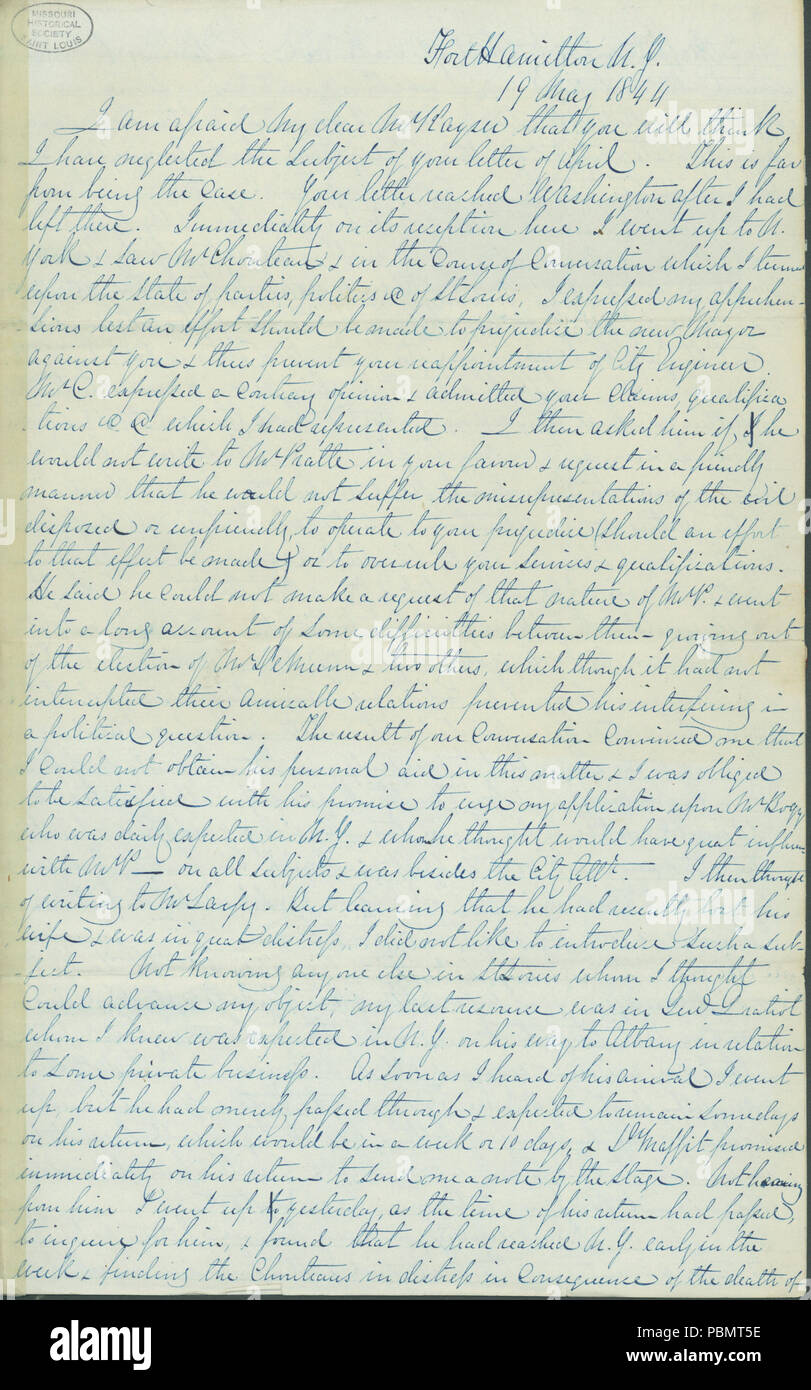 MISSOURI
HISTORICAL
SOCIETY
SAINT LOUIS
Fort Hamilton N. Y.
19 May 1844
I am afraid my dear Mr Kayser that you will think
I have neglected the subject of your letter of April. This is far
from being the case. Your letter reached Washington after I had
left there. Immediately on its reception here I went up to N.
York & saw Mr Chouteau & in the course of conversation which I turned
upon the state of parties, politics &c of St Louis, I expressed my apprehen-
sions lest an effort should be made to prejudice the new Mayor
against you & thus prevent your reappointment of City Engineer
Mr C. expressed a contrary opinion & admitted your claims, qualifica
tions &c &c which I had represented. I then asked him if he
would not write to Mr Pratte in your favour & request in a friendly
manner that he would not suffer the misrepresentations of the evil
disposed or unfriendly, to operate to your prejudice (should an effort
to that effect be made) or to over rule your services & qualifications.
He said he could not make a request of that nature of Mr P. & went
into a long account of some difficulties between them growing out
of the election of Mr DeMunn & two others, which though it had not
intercepted their amicable relations prevented his interfering in
a political question. The result of our conversation convinced me that
I could not obtain his personal aid in this matter & I was obliged
to be satisfied with his promise to urge my application upon Mr Bogy
who was daily expected in N. Y. & who he thought would have great influen-
with Mr P— on all subjects & was besides the City Atty. I then thought
of writing to Mr Sarpy. But learning that he had recently lost his
wife & was in great distress, I did not like to introduce such a sub-
ject. Not knowing any one else in St Louis whom I thought
could advance my object, my last resource was in Genl Pratte
whom I knew was expected in N. Y. on his way to Albany in relation
to some private business. As soon as I heard of his arrival I went
up, but he had merely passed through & expected to remain some days
on his return, which would be in a week or 10 days, & Dr Maffit promised
immediately on his return to send me a note by the stage. Not hearing
from him I went up yesterday, as the time of his return had passed,
to inquire for him, & found that he had reached N. Y. early in the
week & finding the Chouteaus in distress in consequence of the death of
alamy
PBMT5E
www.alamy.com